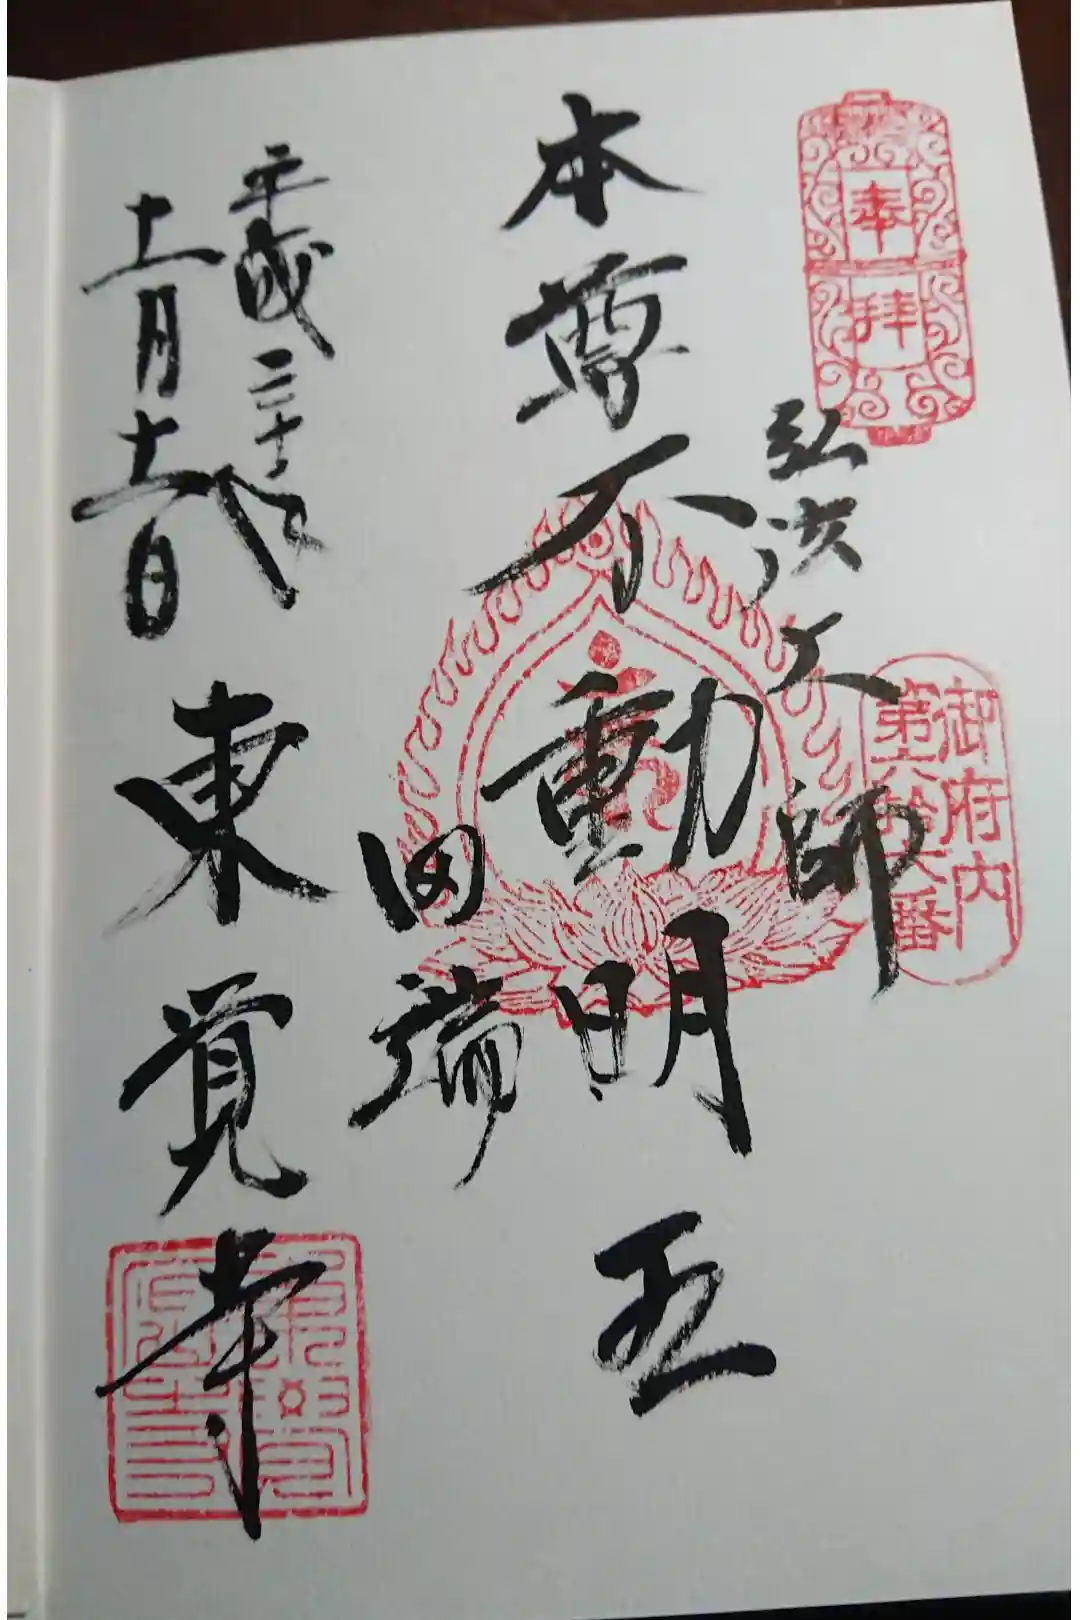 奉拝
弘法大師
御府内
第六拾六番
本尊不動明王
田端
平成
十一月十一日
東覚寺